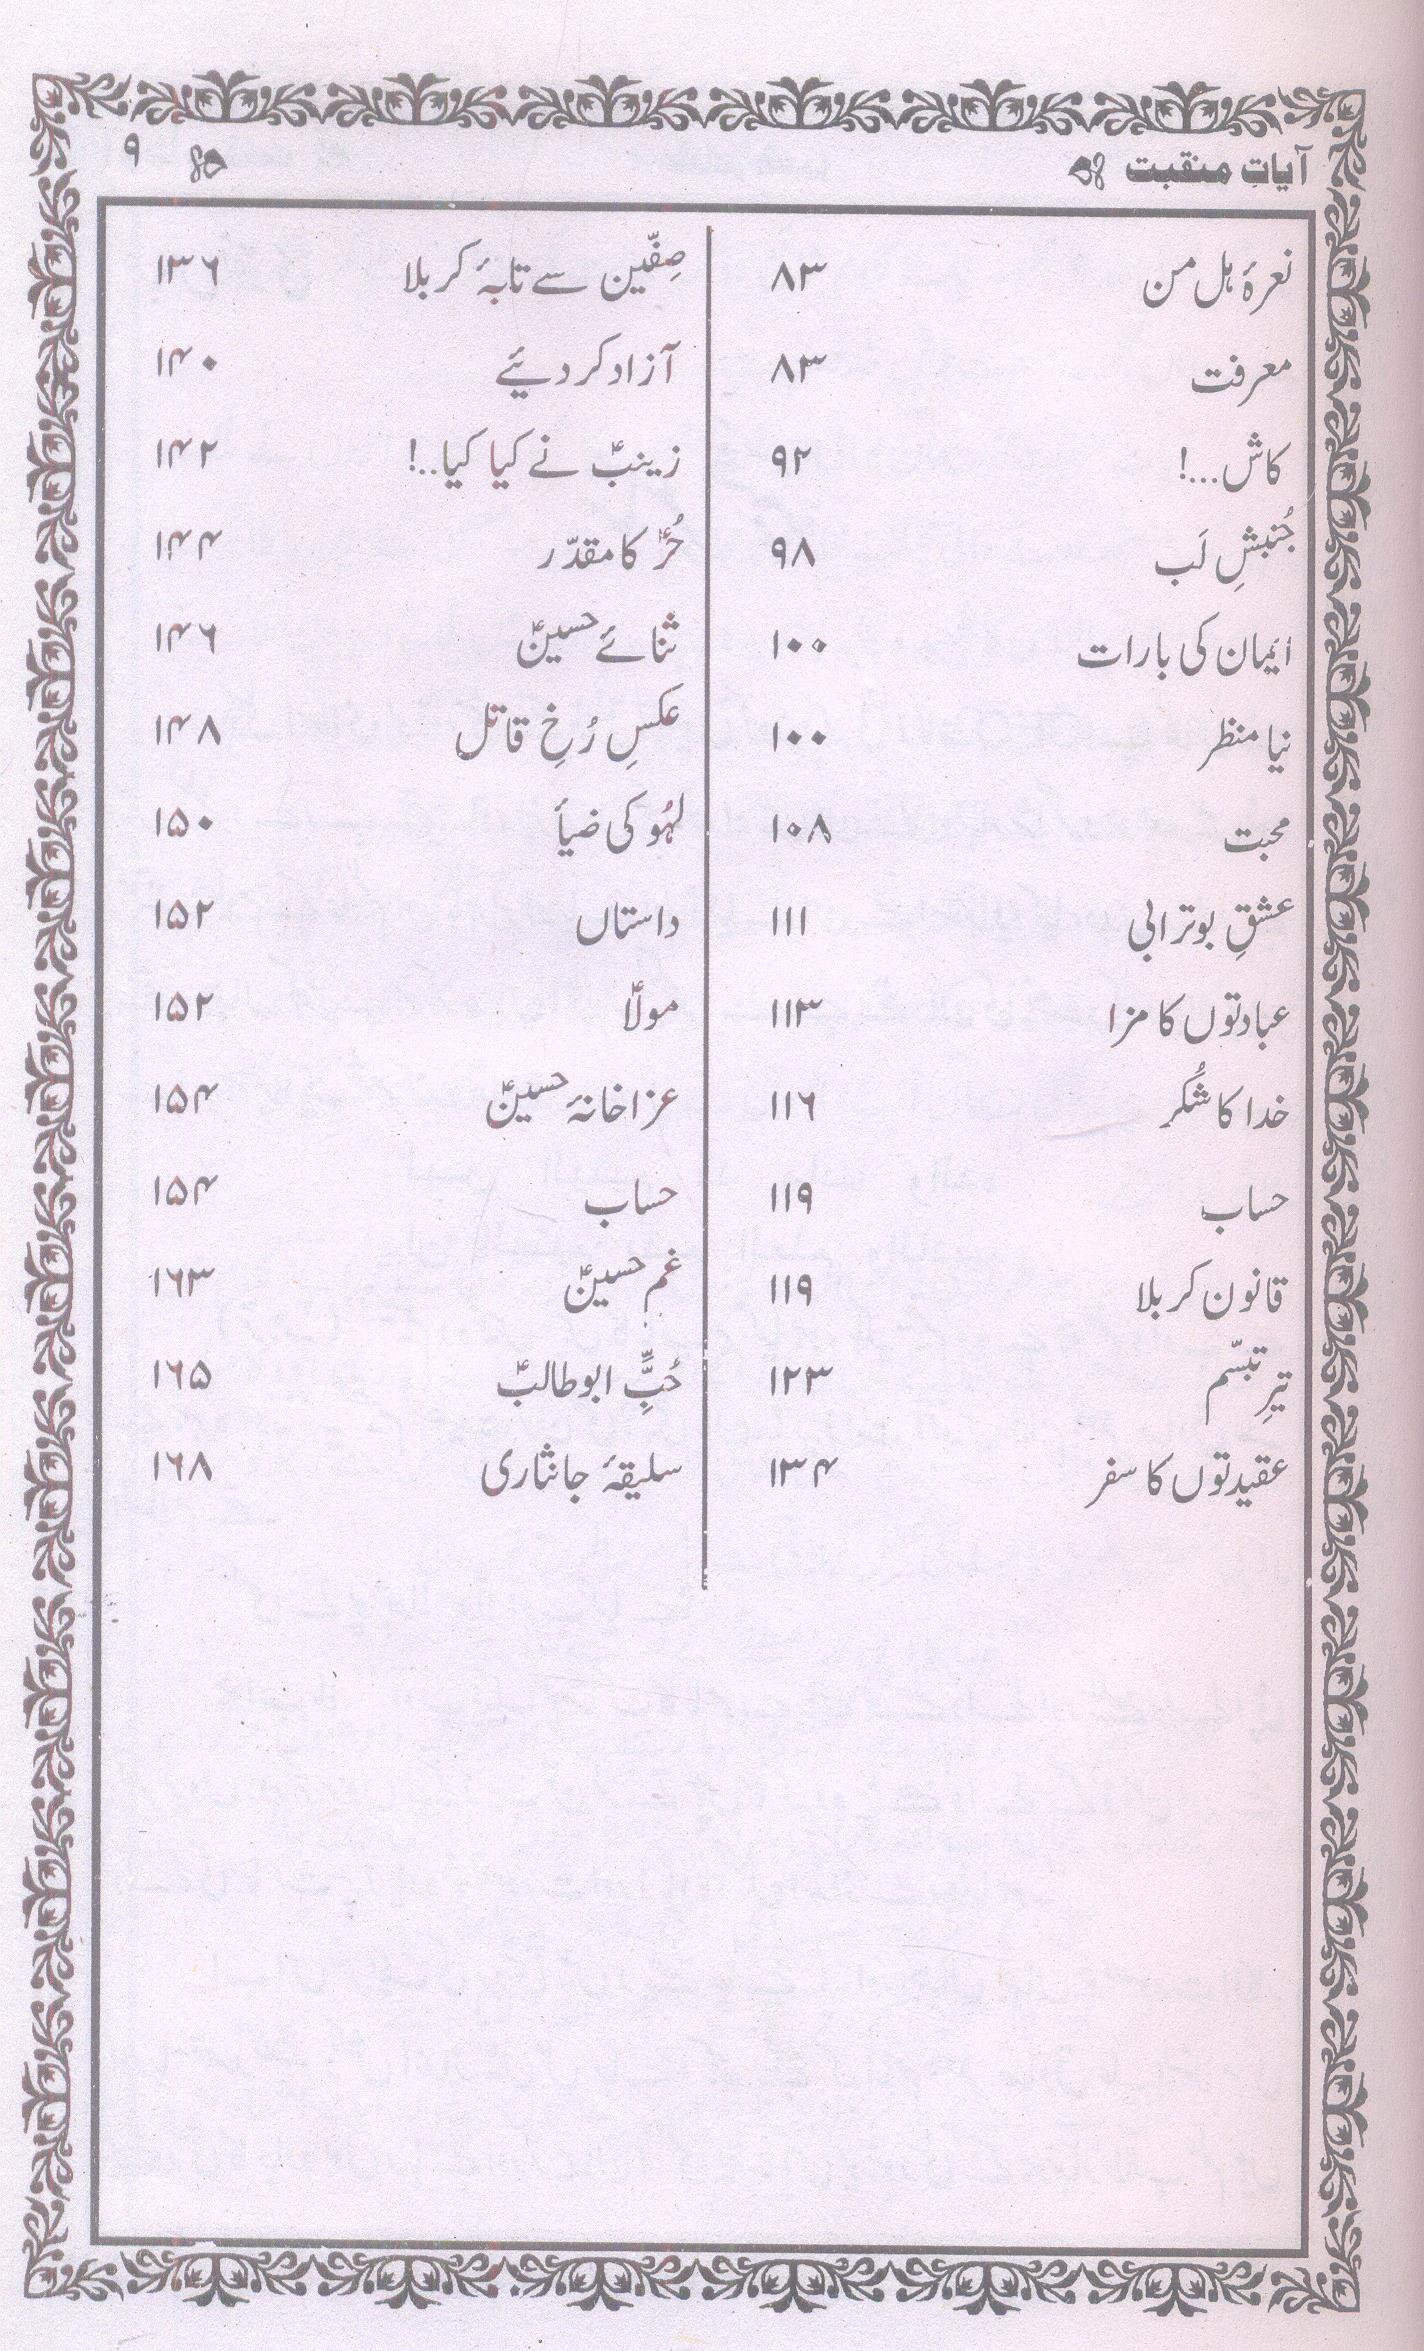 آیاتِ منقبت ۹
نعرۂ ہل من ۸۳
معرفت ۸۳
کاش...! ۹۲
جُنبشِ لَب ۹۸
ایمان کی بارات ۱۰۰
نیا منظر ۱۰۰
محبت ۱۰۸
عشقِ بوترابی ۱۱۱
عبادتوں کا مزا ۱۱۳
خدا کا شُکر ۱۱۶
حساب ۱۱۹
قانون کربلا ۱۱۹
تیرِ تبسّم ۱۲۳
عقیدتوں کا سفر ۱۳۴
صِفّین سے تابہٴ کربلا ۱۳۶
آزاد کر دیئے ۱۴۰
زینبؑ نے کیا کیا..! ۱۴۲
حُرؑ کا مقدّر ۱۴۴
ثنائے حسینؑ ۱۴۶
عکسِ رُخِ قاتل ۱۴۸
لہُو کی ضیأ ۱۵۰
داستاں ۱۵۲
مولاؑ ۱۵۲
عزاخانۂ حسینؑ ۱۵۴
حساب ۱۵۴
غم حسینؑ ۱۶۳
حُبِّ ابوطالبؑ ۱۶۵
سلیقۂ جانثاری ۱۶۸